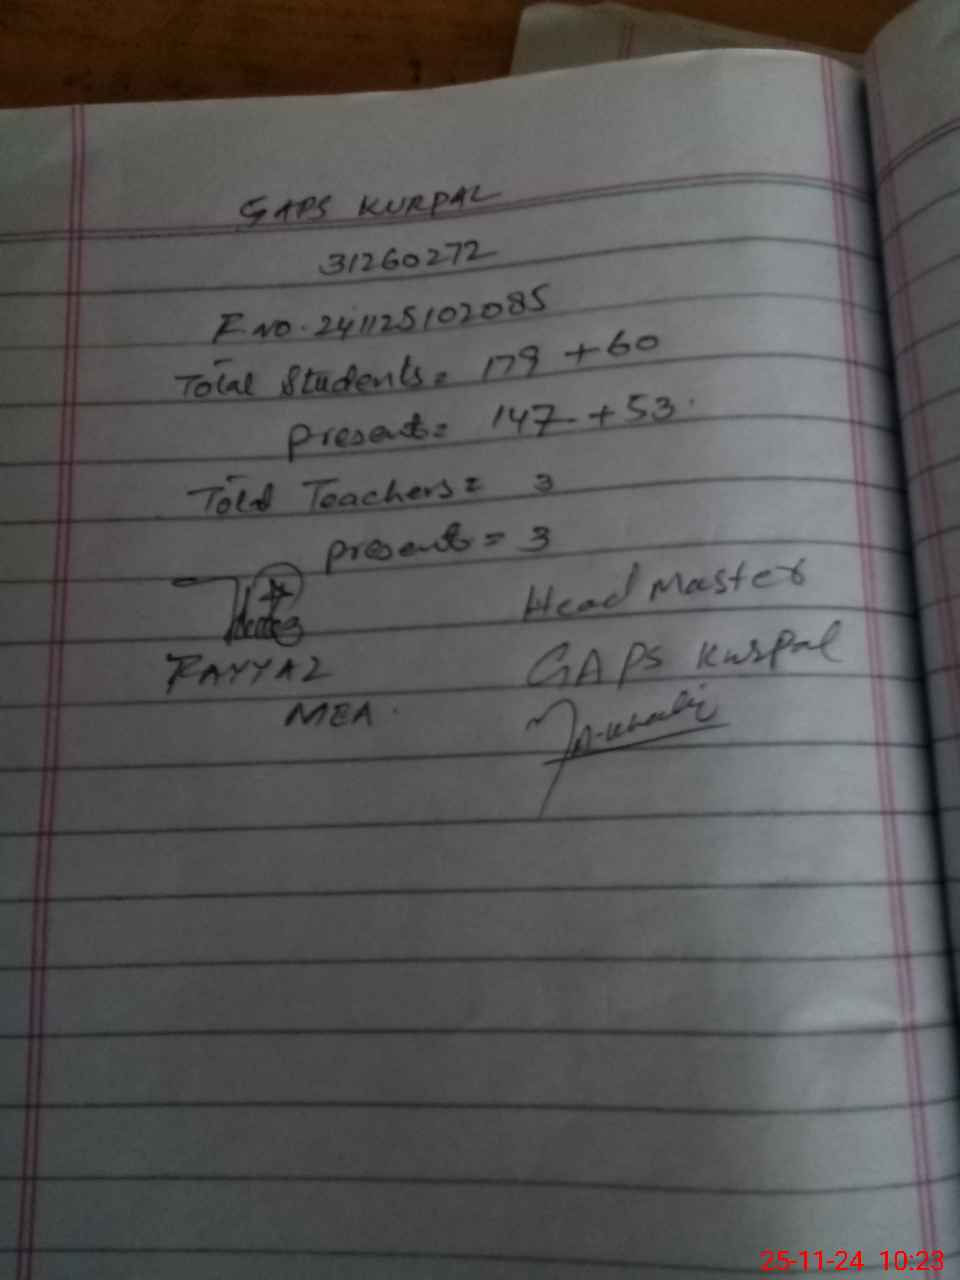 GAPS KURPAL
31260272
F.NO. 241125102085
Total Students = 179 + 60
present = 147 + 53.
Total Teachers = 3
present = 3
Head Master
FAYYAZ
GAPS Kurpal
MEA.
25-11-24 10:23